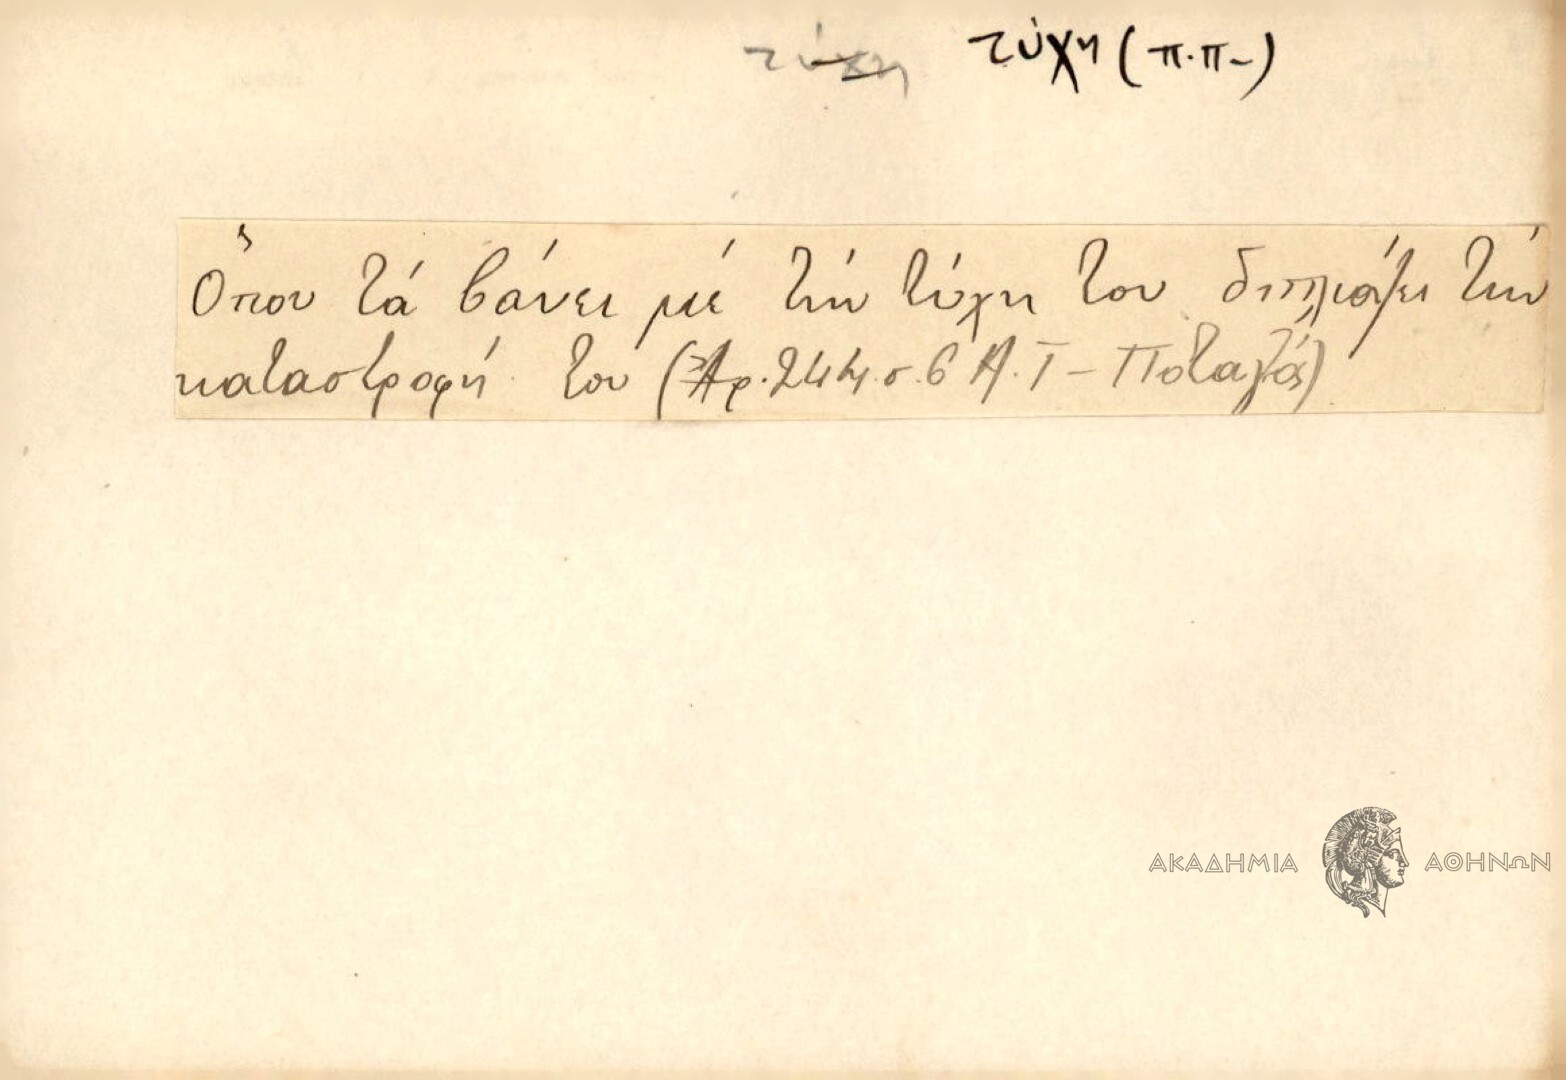 τύχη τύχη (π.π-)
Ὅπου τά βάνει μέ τήν τύχη του διπλιάζει τήν
καταστροφή του (Ἀρ. 244. σ. 6 Λ. Τ - Ποταμός)
ΑΚΑΔΗΜΙΑ ΑΘΗΝΩΝ